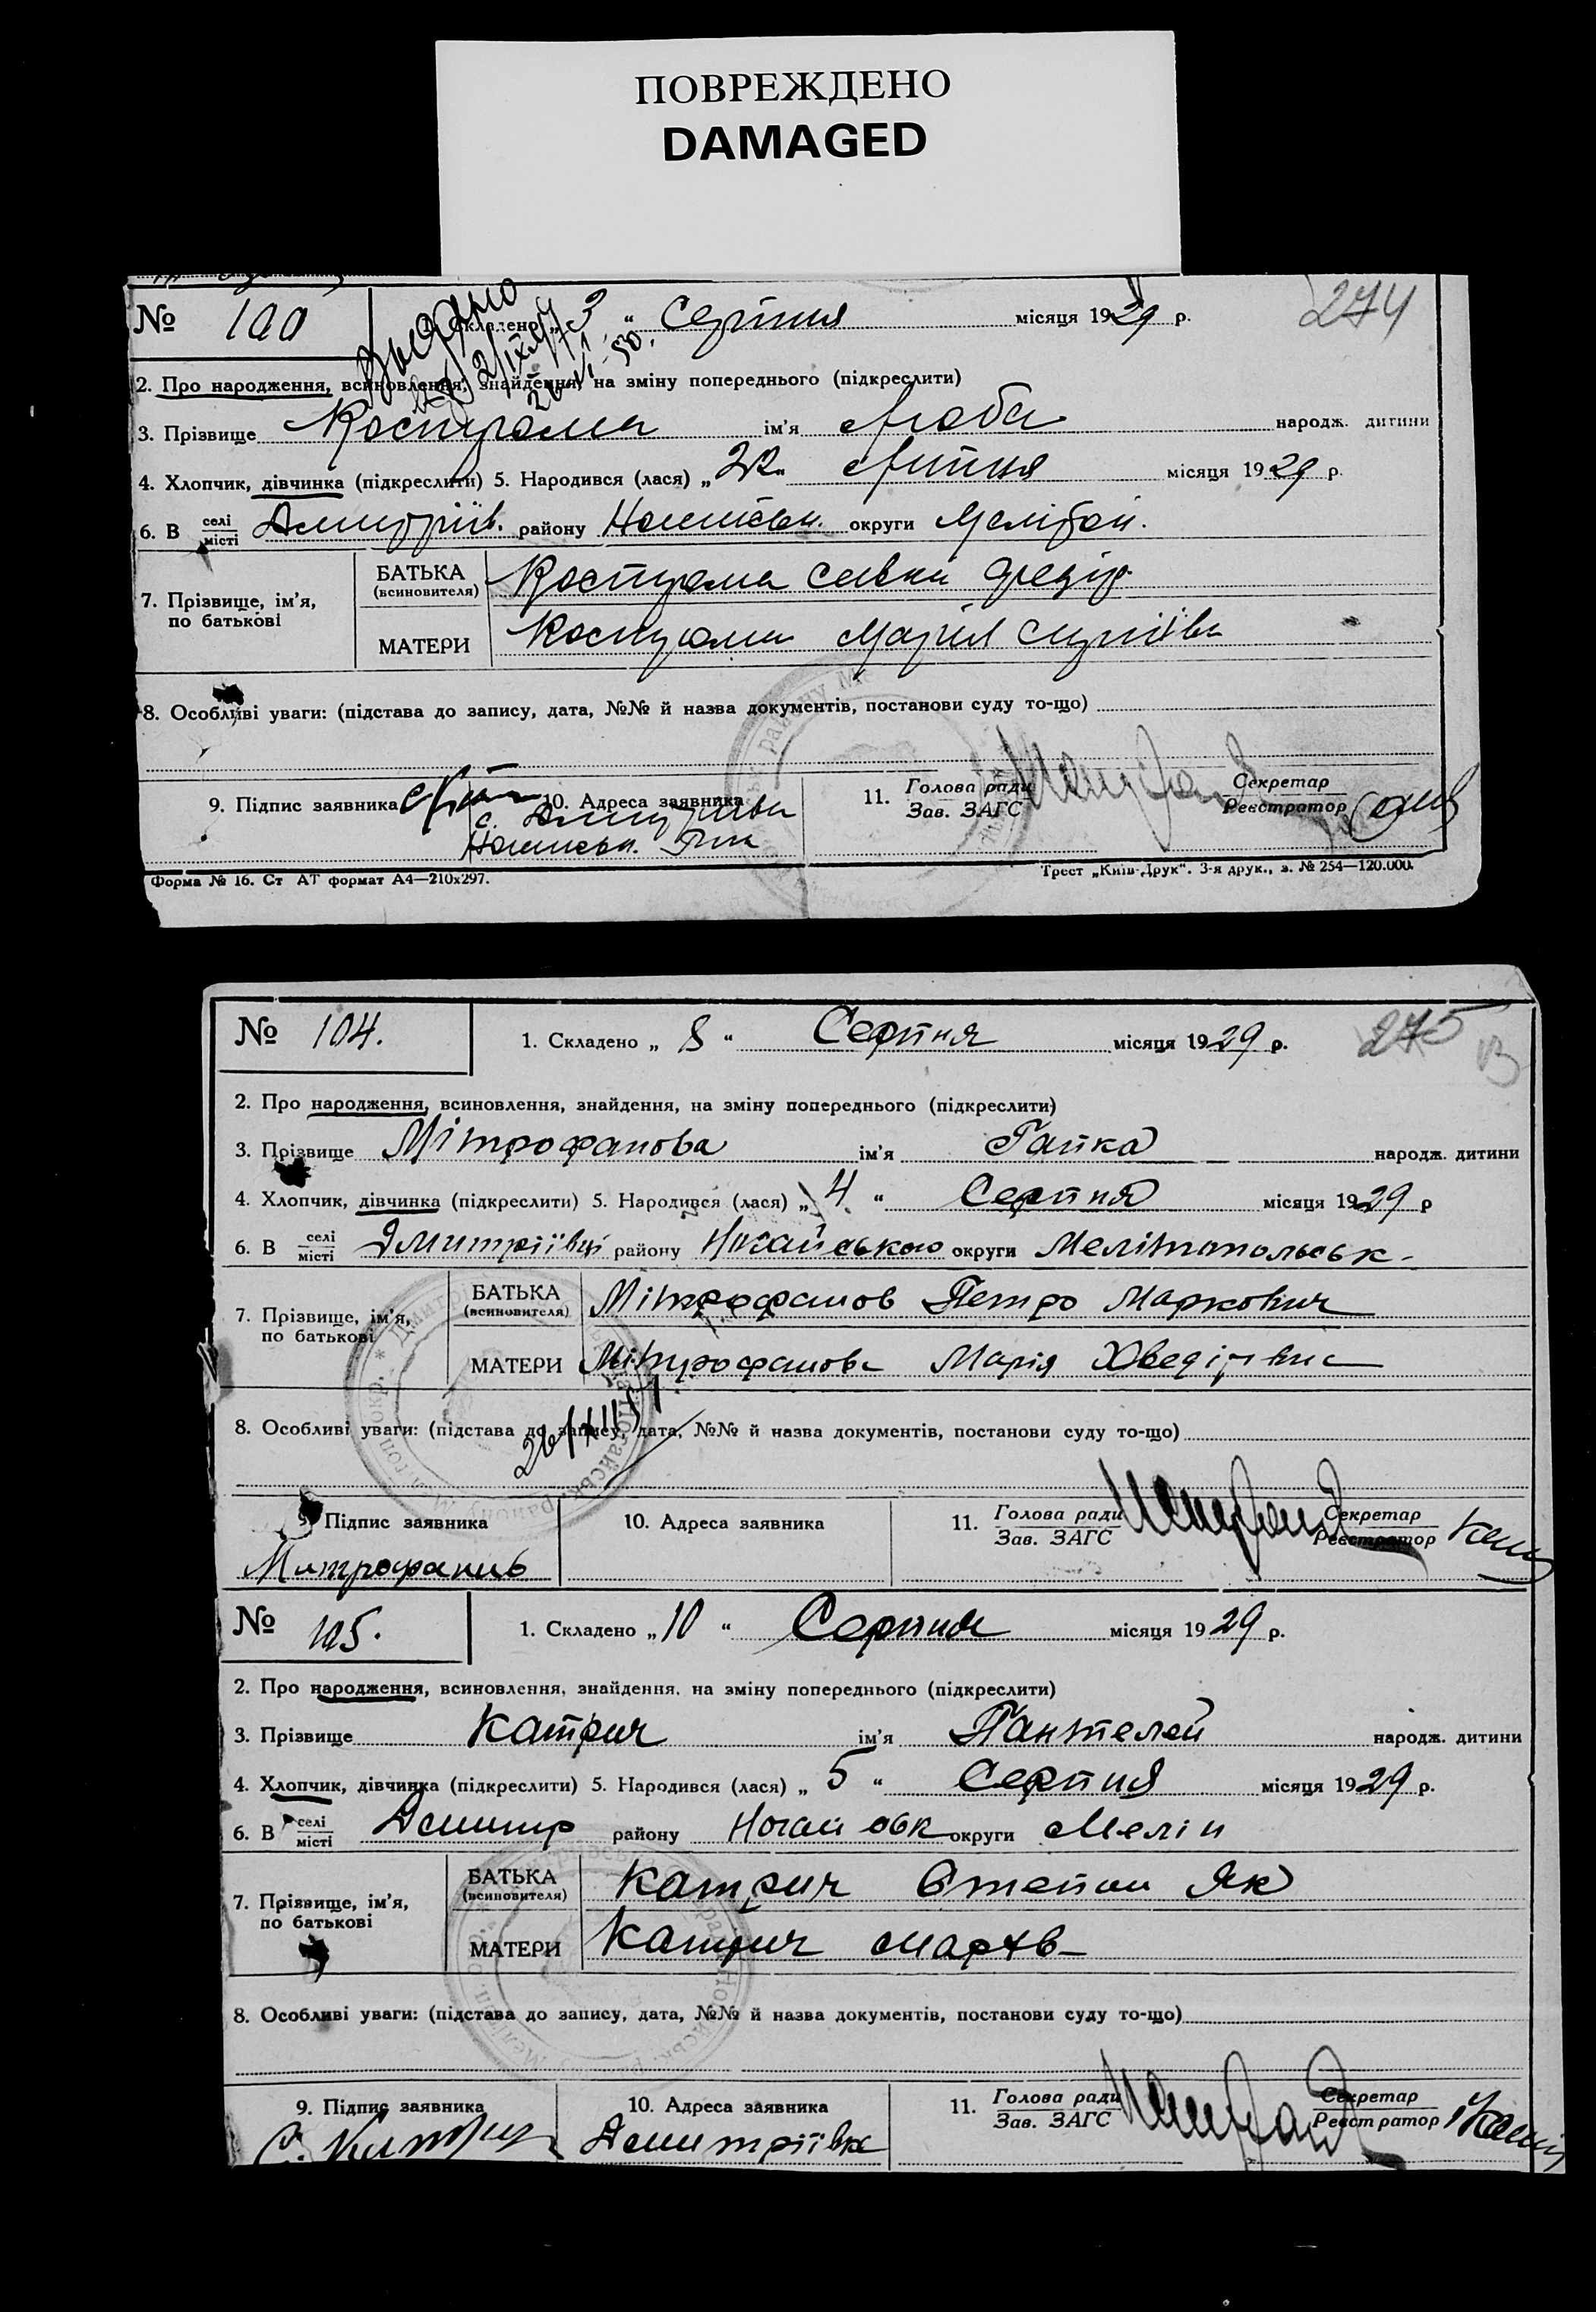 ПОВРЕЖДЕНО
DAMAGED
№ 100 1. Складено „ 3 “ Серпня місяця 1929 р. 274
Выдано
2. Про народження, всиновлення, знайдення, на зміну попереднього (підкреслити)
3. Прізвище Кострома ім'я Люба народж. дитини
4. Хлопчик, дівчинка (підкреслити) 5. Народився (лася) „ 22 “ Липня місяця 1929 р.
6. В селі місті Дмитріїв. району округи
7. Прізвище, ім'я, по батькові
БАТЬКА (всиновителя) Кострома Савка
МАТЕРИ Кострома Марія
8. Особливі уваги: (підстава до запису, дата, №№ й назва документів, постанови суду то-що)
9. Підпис заявника 10. Адреса заявника 11. Голова ради Зав. ЗАГС Секретар Реєстратор
с. Дмитрівка
Форма № 16. Ст АТ формат А4—210х297. Трест „Київ-Друк“. 3-я друк., з. № 254—120.000.
№ 104. 1. Складено „ 8 “ Серпня місяця 1929 р. 275
2. Про народження, всиновлення, знайдення, на зміну попереднього (підкреслити)
3. Прізвище Мітрофанова ім'я Галка народж. дитини
4. Хлопчик, дівчинка (підкреслити) 5. Народився (лася) „ 4 “ Серпня місяця 1929 р
6. В селі місті Дмитріївці району Ногайського округи Мелітопольськ-
7. Прізвище, ім'я, по батькові
БАТЬКА (всиновителя) Мітрофанов Петро Маркович
МАТЕРИ Мітрофанова Марія Хведірвна
8. Особливі уваги: (підстава до запису, дата, №№ й назва документів, постанови суду то-що)
26/XII 51
9. Підпис заявника 10. Адреса заявника 11. Голова ради Зав. ЗАГС Секретар Реєстратор
Митрофанив
№ 105. 1. Складено „ 10 “ Серпня місяця 1929 р.
2. Про народження, всиновлення, знайдення, на зміну попереднього (підкреслити)
3. Прізвище Катрич ім'я Пантелей народж. дитини
4. Хлопчик, дівчинка (підкреслити) 5. Народився (лася) „ 5 “ Серпня місяця 1929 р.
6. В селі місті Дмитр району Ногайськ округи Меліт
7. Прізвище, ім'я, по батькові
БАТЬКА (всиновителя) Катрич Степан Як
МАТЕРИ Катрич
8. Особливі уваги: (підстава до запису, дата, №№ й назва документів, постанови суду то-що)
9. Підпис заявника 10. Адреса заявника 11. Голова ради Зав. ЗАГС Секретар Реєстратор
С. Катрич Дмитріївка